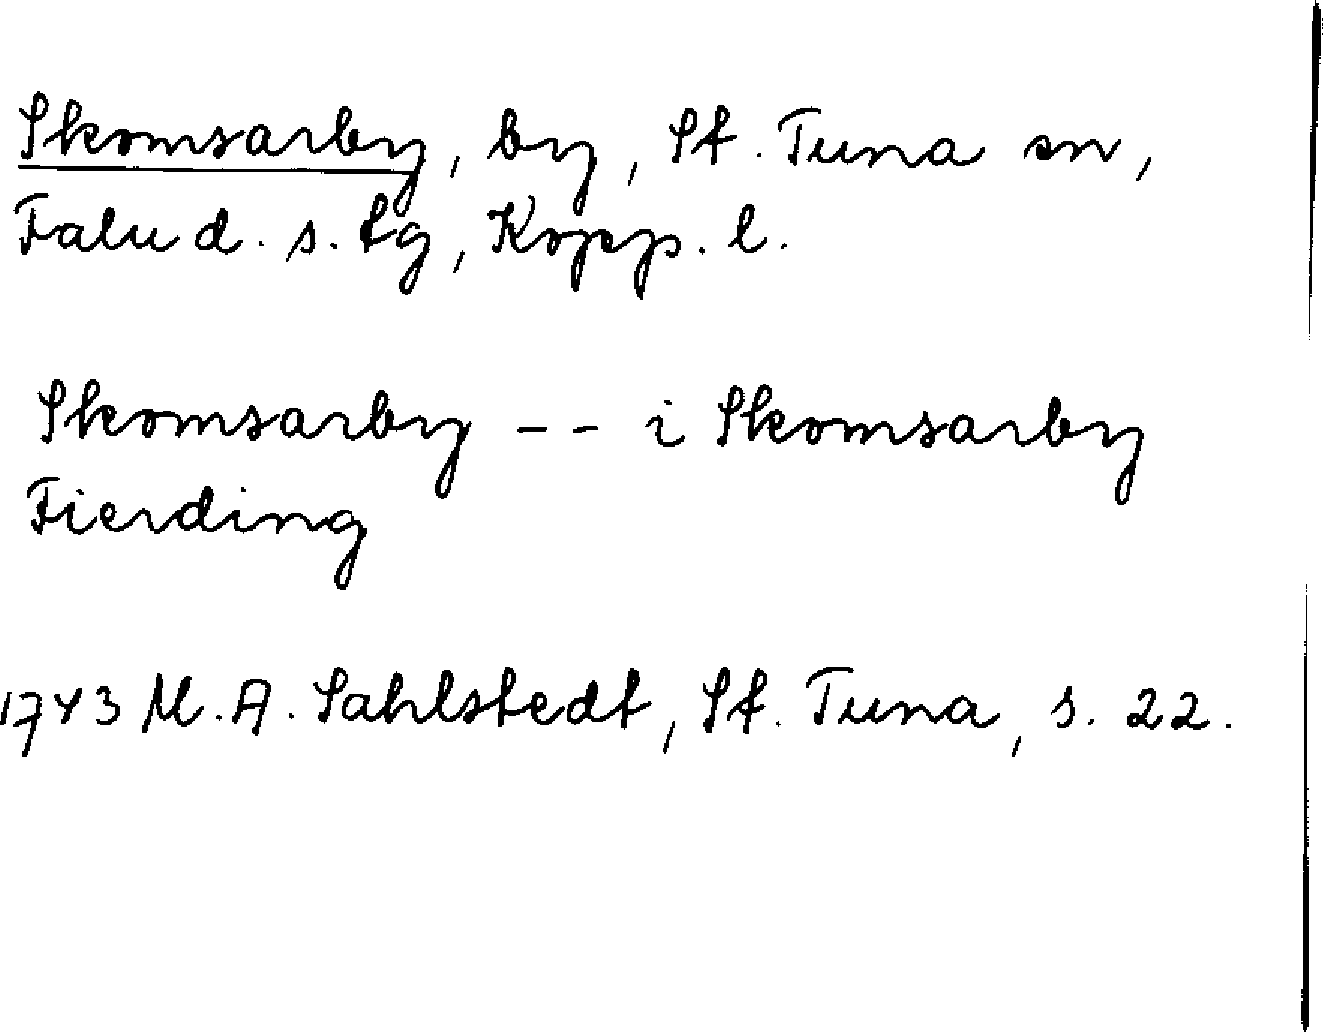 Skomsarby, by, St. Tuna sn,
Falu d. s. tg, Kopp. l.
Skomsarby -- i Skomsarby
Fierding
1743 M. A. Sahlstedt, St. Tuna, s. 22.